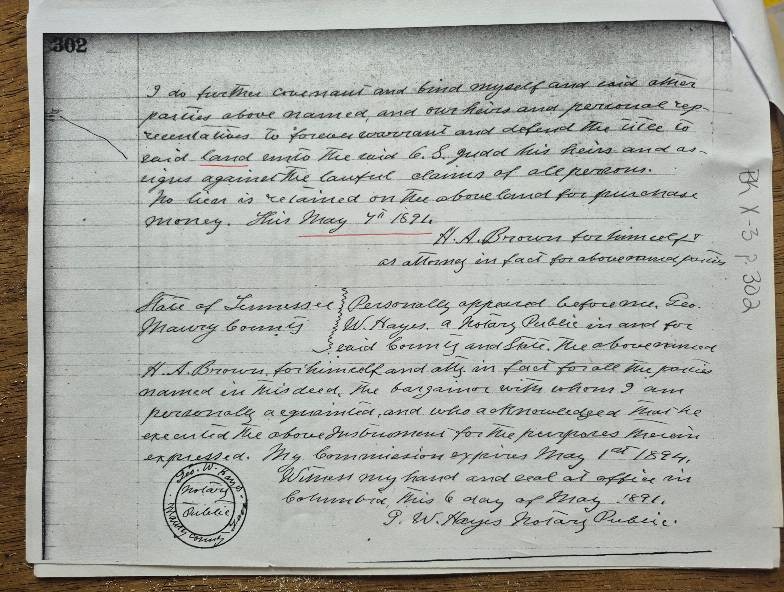 302
I do further covenant and bind myself and said other
parties above named, and our heirs and personal rep-
resentatives to forever warrant and defend the title to
said land unto the said C. S. Judd his heirs and as-
signs against the lawful claims of all persons.
No lien is retained on the above land for purchase
money. This May 7th 1891.
H. A. Brown for himself &
as attorney in fact for above named parties
State of Tennessee
Maury County
Personally appeared before me, Geo.
W. Hayes, a Notary Public in and for
said County and State, the above named
H. A. Brown, for himself and atty in fact for all the parties
named in this deed, the bargainor with whom I am
personally acquainted, and who acknowledged that he
executed the above Instrument for the purposes therein
expressed. My Commission expires May 1st 1894.
Witness my hand and seal at office in
Columbia, this 6 day of May 1891.
G. W. Hayes Notary Public.
Geo. W. Hayes
Notary
Public
Maury County
Bk X-3 p 302